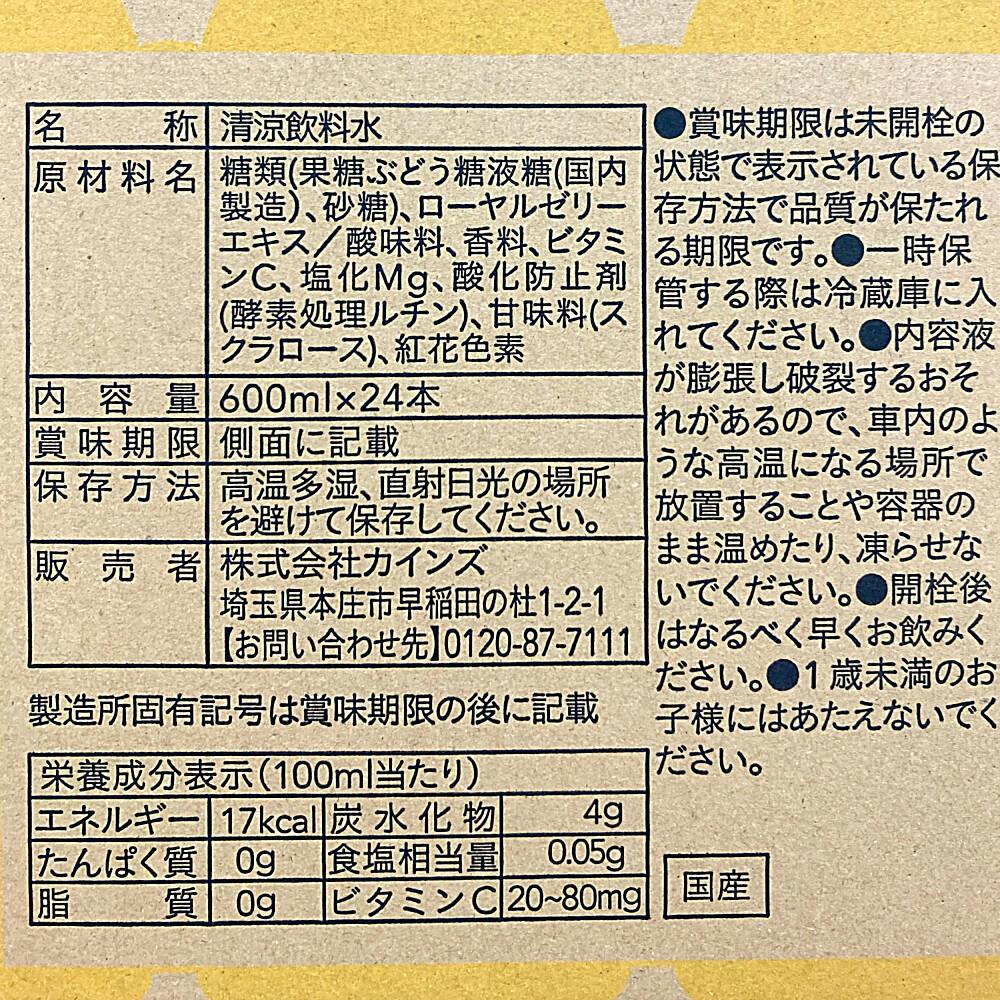 名称 清涼飲料水
原材料名 糖類(果糖ぶどう糖液糖(国内
製造)、砂糖)、ローヤルゼリー
エキス/酸味料、香料、ビタミ
ンC、塩化Mg、酸化防止剤
(酵素処理ルチン)、甘味料(ス
クラロース)、紅花色素
内容量 600ml×24本
賞味期限 側面に記載
保存方法 高温多湿、直射日光の場所
を避けて保存してください。
販売者 株式会社カインズ
埼玉県本庄市早稲田の杜1-2-1
【お問い合わせ先】0120-87-7111
製造所固有記号は賞味期限の後に記載
栄養成分表示(100ml当たり)
エネルギー 17kcal 炭水化物 4g
たんぱく質 0g 食塩相当量 0.05g
脂質 0g ビタミンC 20~80mg
●賞味期限は未開栓の
状態で表示されている保
存方法で品質が保たれ
る期限です。●一時保
管する際は冷蔵庫に入
れてください。●内容液
が膨張し破裂するおそ
れがあるので、車内のよ
うな高温になる場所で
放置することや容器の
まま温めたり、凍らせな
いでください。●開栓後
はなるべく早くお飲みく
ださい。●1歳未満のお
子様にはあたえないでく
ださい。
国産